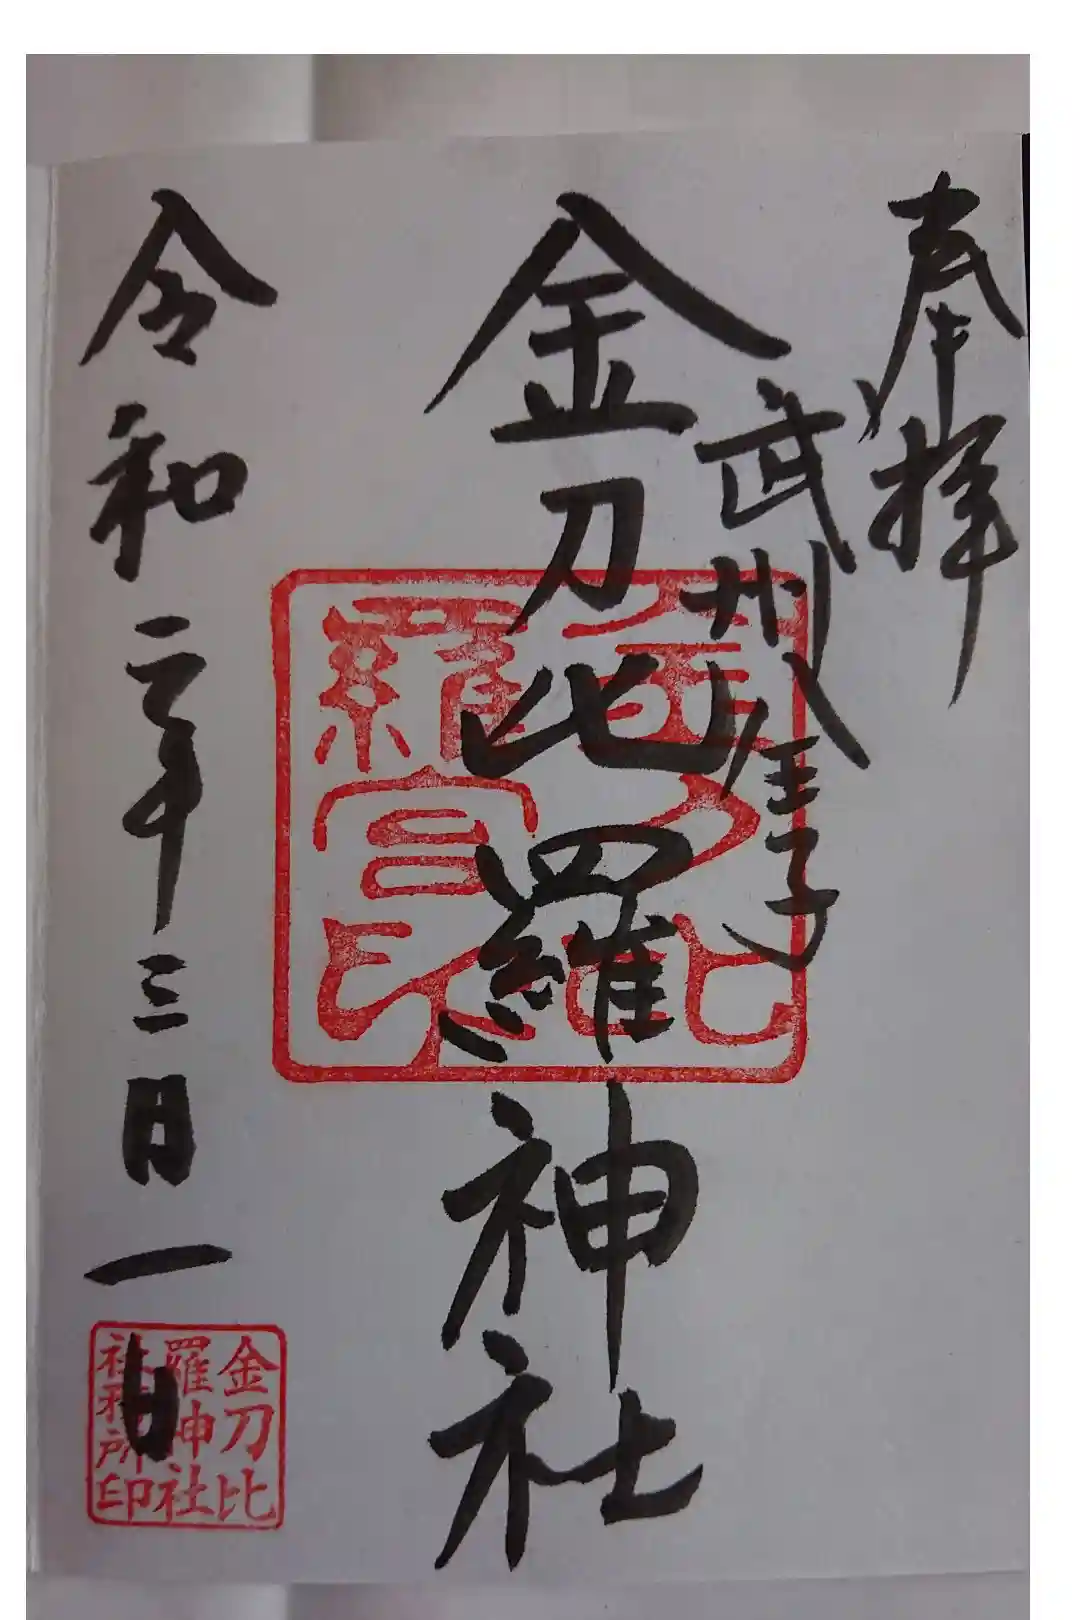 奉拝
武州八王子
金刀比羅神社
金刀比羅宮印
令和二年三月一日
金刀比
羅神社
社務所印